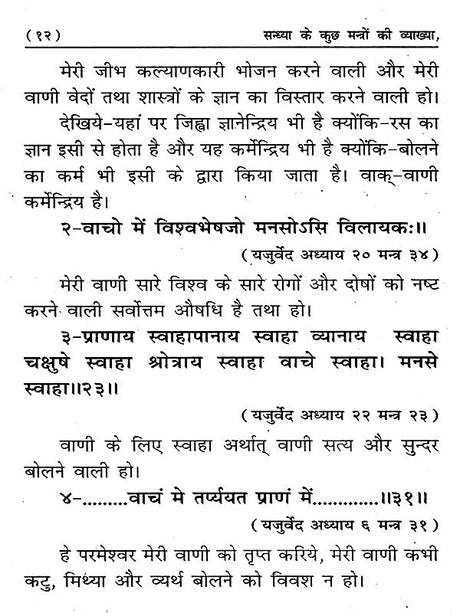 (१२) सन्ध्या के कुछ मन्त्रों की व्याख्या,
मेरी जीभ कल्याणकारी भोजन करने वाली और मेरी
वाणी वेदों तथा शास्त्रों के ज्ञान का विस्तार करने वाली हो।
देखिये-यहां पर जिह्वा ज्ञानेन्द्रिय भी है क्योंकि-रस का
ज्ञान इसी से होता है और यह कर्मेन्द्रिय भी है क्योंकि-बोलने
का कर्म भी इसी के द्वारा किया जाता है। वाक्-वाणी
कर्मेन्द्रिय है।
२-वाचो में विश्वभेषजो मनसोऽसि विलायकः॥
(यजुर्वेद अध्याय २० मन्त्र ३४)
मेरी वाणी सारे विश्व के सारे रोगों और दोषों को नष्ट
करने वाली सर्वोत्तम औषधि है तथा हो।
३-प्राणाय स्वाहापानाय स्वाहा व्यानाय स्वाहा
चक्षुषे स्वाहा श्रोत्राय स्वाहा वाचे स्वाहा। मनसे
स्वाहा॥२३॥
(यजुर्वेद अध्याय २२ मन्त्र २३)
वाणी के लिए स्वाहा अर्थात् वाणी सत्य और सुन्दर
बोलने वाली हो।
४-.........वाचं मे तर्प्ययत प्राणं में.............॥३१॥
(यजुर्वेद अध्याय ६ मन्त्र ३१)
हे परमेश्वर मेरी वाणी को तृप्त करिये, मेरी वाणी कभी
कटु, मिथ्या और व्यर्थ बोलने को विवश न हो।